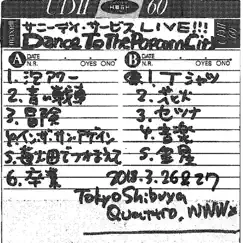 UDII HIGH 60
maxell
サニーデイ・サービス LIVE!!!
Dance To The Popcorn City
A DATE
N.R. OYES ONO
1. 泡アワー
2. 青い戦車
3. 冒険
4. イン・ザ・サン・アゲイン
5. 苺畑でつかまえて
6. 卒業
B DATE
N.R. OYES ONO
1. Tシャツ
2. 花火
3. セツナ
4. 音楽
5. 金星
2018.3.26&27
Tokyo Shibuya
Quattro, WWWX